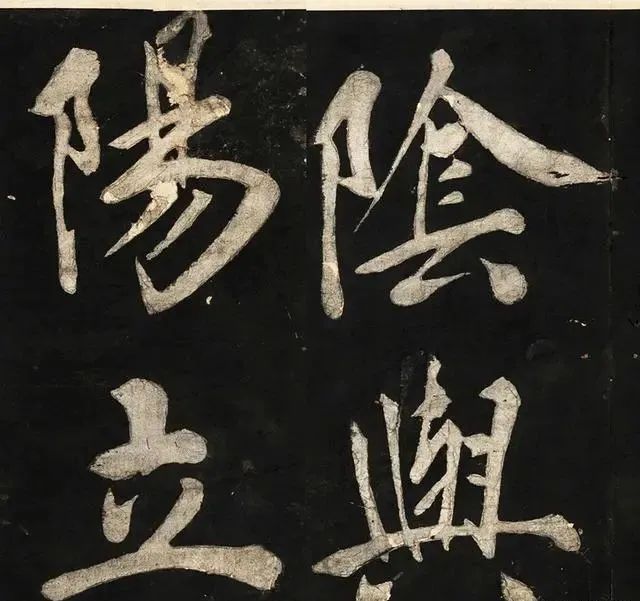 陰與
陽立